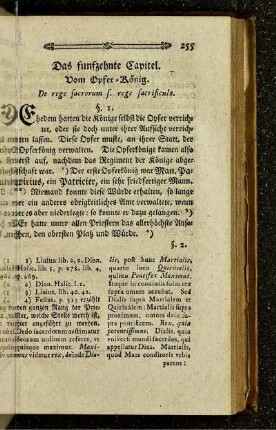 255
Das funfzehnte Capitel.
Vom Opfer-König.
De rege sacrorum s. rege sacrificulo.
§. 1.
Ehedem hatten die Könige selbst die Opfer verrich-
tet, oder sie doch unter ihrer Aufsicht verrich-
ten lassen. Diese Opfer muste, an ihrer Statt, der
Opferkönig verwalten. Die Opferkönige kamen also
erst auf, nachdem das Regiment der Könige abge-
schaft war. ¹) Der erste Opferkönig war Man. Pa-
pirius, ein Patricier, ein sehr friedfertiger Mann.
²) Niemand konnte diese Würde erhalten, so lange
er ein anderes obrigkeitliches Amt verwaltete, wenn
er es aber niederlegte: so konnte er dazu gelangen. ³)
Er hatte unter allen Priestern das allerhöchste Anse-
hen, den obersten Platz und Würde. ⁴)
§. 2.
1) Liuius lib. 2, 2. Dion.
Halic. lib. 5, p. 278. lib. 4,
pag. 269.
2) Dion. Halic. l. c.
3) Liuius lib. 40, 42.
4) Festus, p. 323 erzählt
den ganzen Rang der Prie-
ster, welcher Stelle werth ist,
hier angeführt zu werden.
Ordo sacerdotum aestimatur
deorum ordine, vt referre
maximus quisque. Maxi-
mus videtur rex, deinde Dia-
lis, post hunc Martialis,
quarto loco Quirinalis,
quinto Pontifex Maximus.
Itaque in conuiuiis solus rex
supra omnes accumbat. Sed
Dialis supra Martialem et
Quirinalem: Martialis supra
proximum, omnes item supra
pontificem. Rex, quia
potentissimus: Dialis, quia
vniuersi mundi sacerdos, qui
appellatur Dius. Martialis,
quod Mars conditoris vrbis
parens: